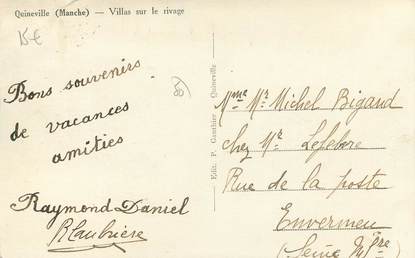 Quineville (Manche) — Villas sur le rivage
15€
Bons souvenirs
de vacances
amitiés
Raymond-Daniel
RLaubrière
Edit. P. Gauthier Quineville
Mme Mr Michel Bigaud
chez Mr Lefebvre
Rue de la poste
Envermeu
(Seine Infre